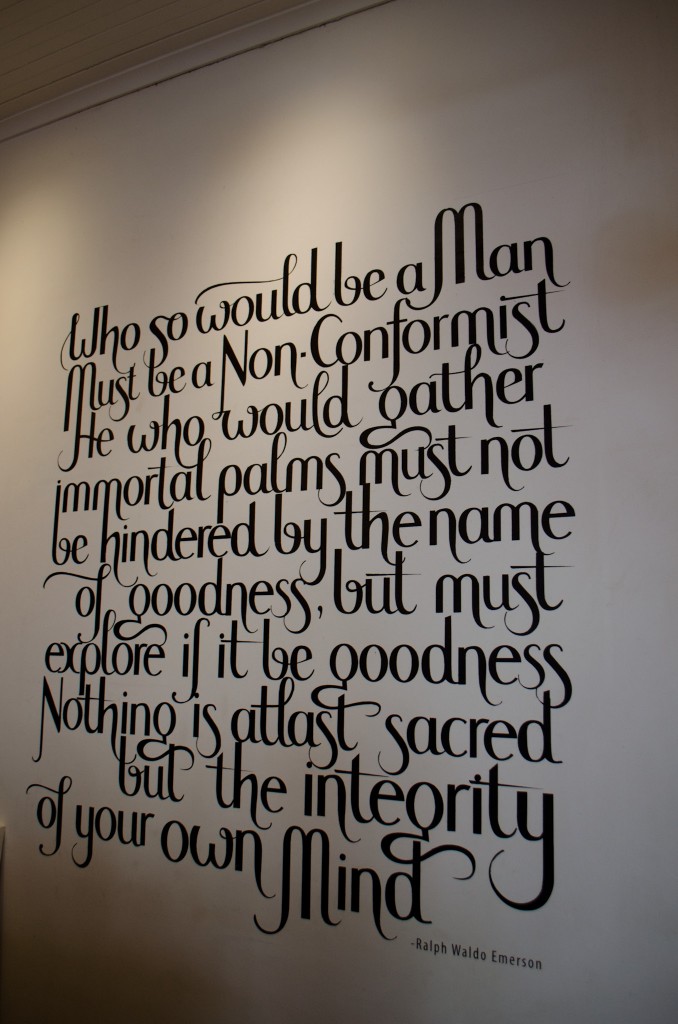 Who so would be a Man
Must be a Non-Conformist
He who would gather
immortal palms must not
be hindered by the name
of goodness, but must
explore if it be goodness
Nothing is at last sacred
but the integrity
of your own Mind
-Ralph Waldo Emerson